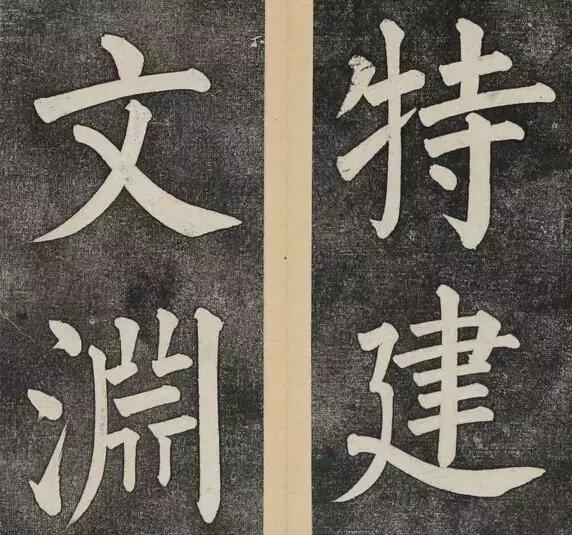 特建
文淵